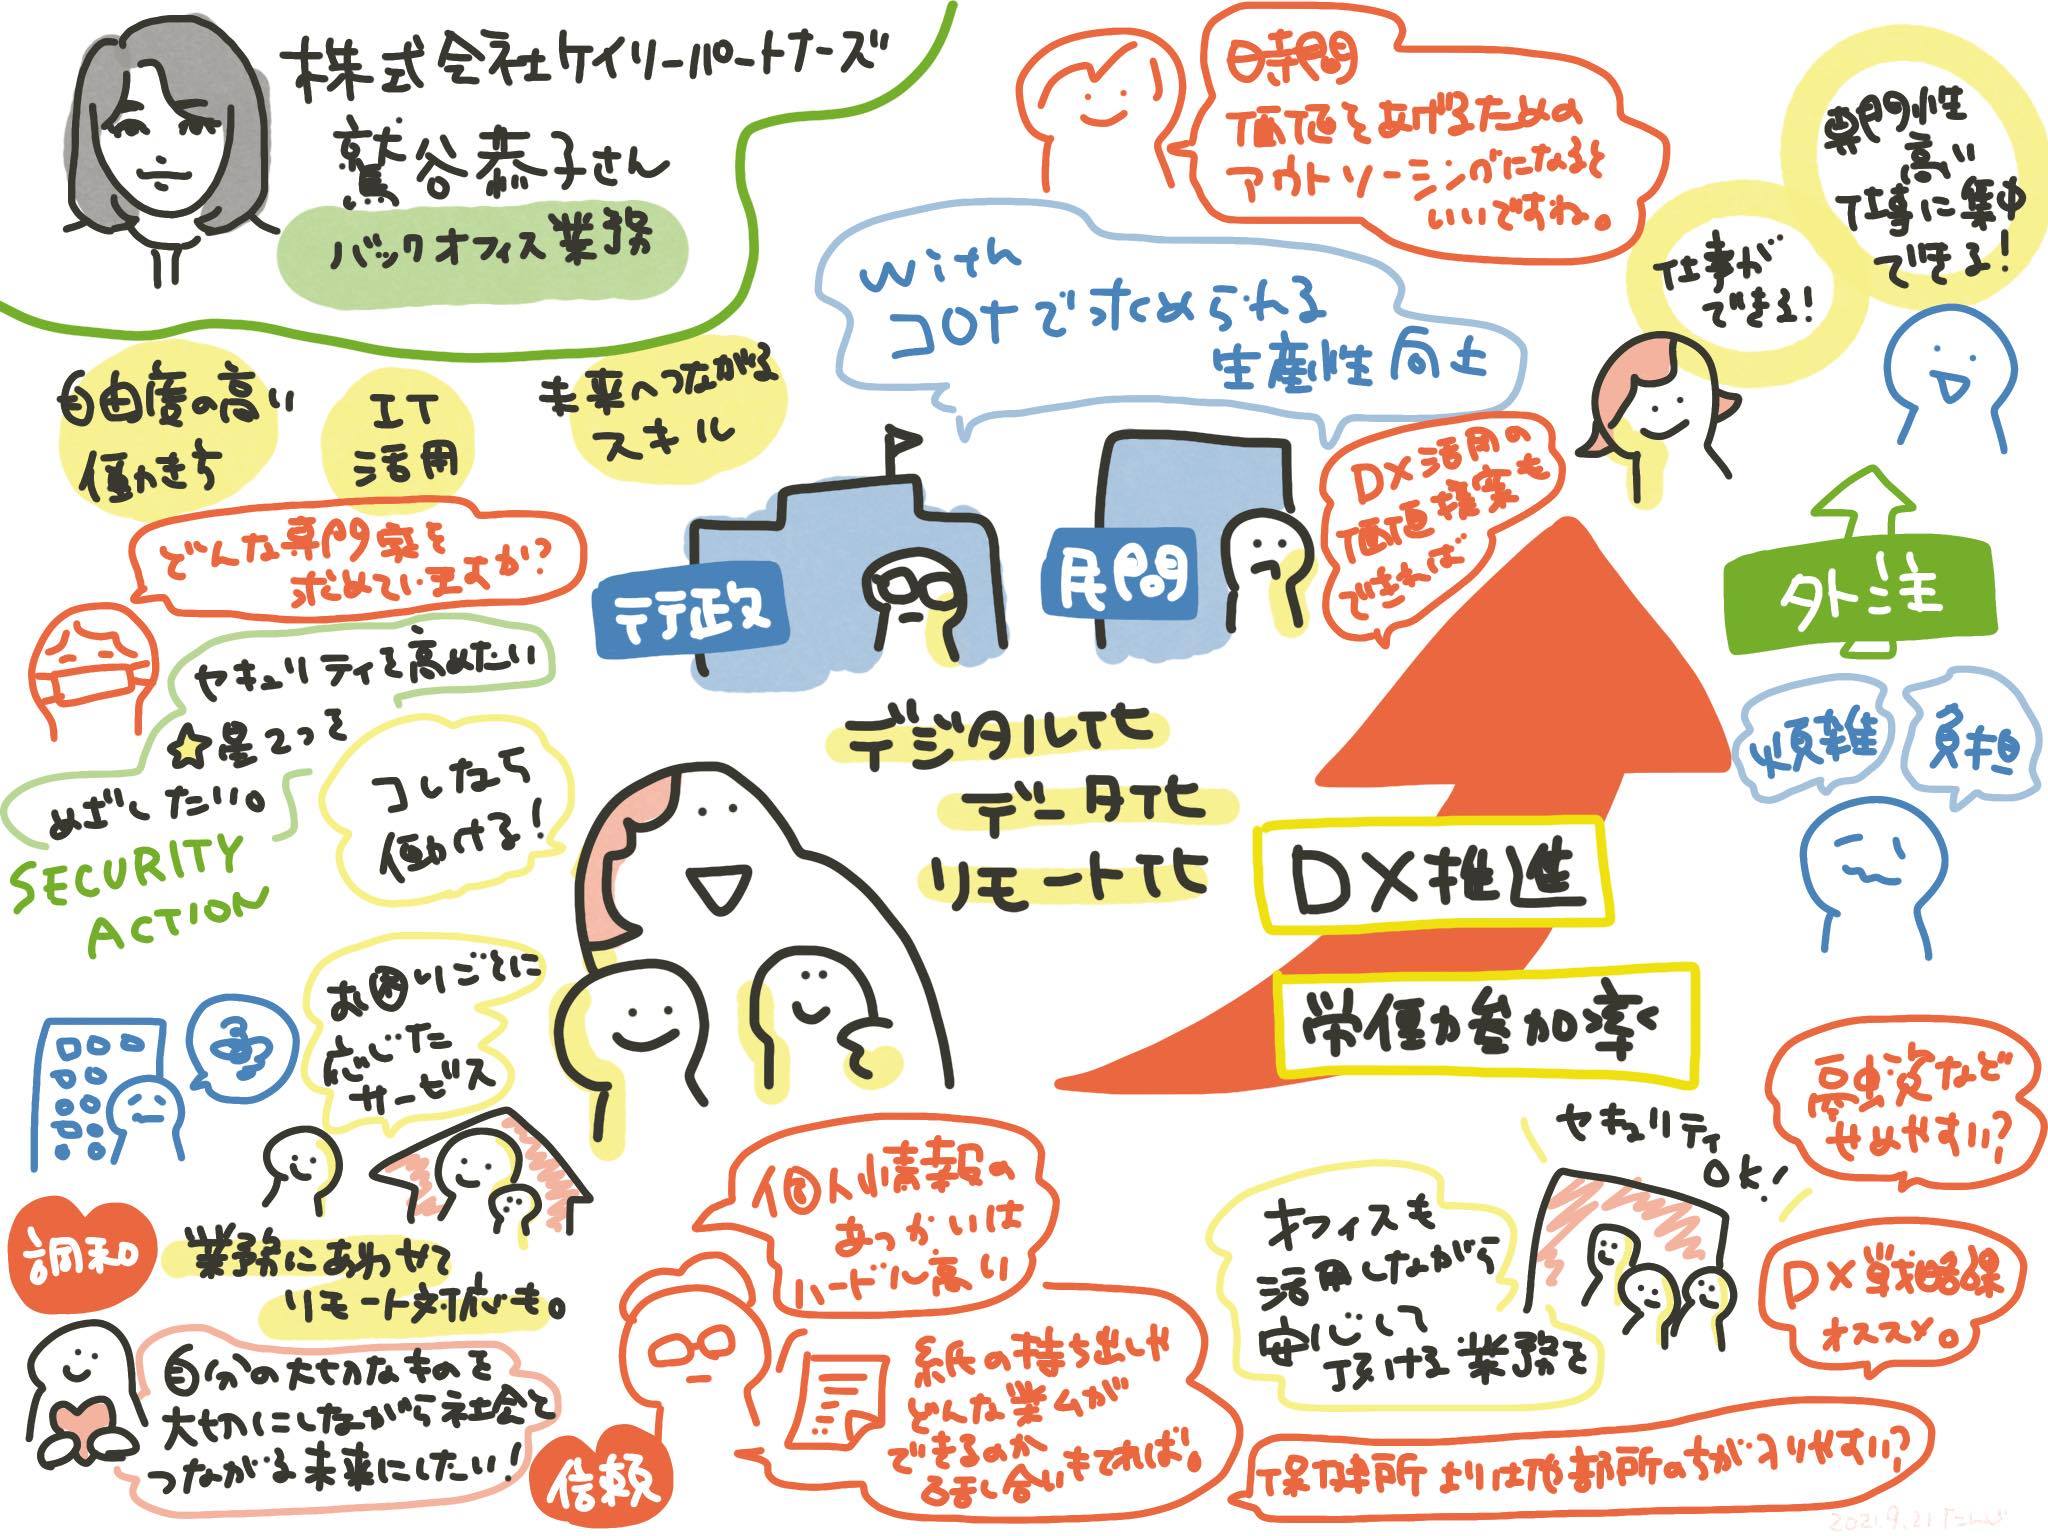 株式会社ケイリーパートナーズ
鷲谷恭子さん
バックオフィス業務
時間
価値をあげるための
アウトソーシングになると
いいですね。
専門性
高い
仕事に集中
できる！
仕事が
できる！
with
コロナで求められる
生産性向上
自由度の高い
働きかち
IT
活用
未来へつながる
スキル
どんな専門家を
求めていますか？
行政
民間
DX活用の
価値提案も
できれば
外注
煩雑
負担
セキュリティを高めたい
☆星2つを
めざしたい。
SECURITY
ACTION
コしたち
働ける！
デジタル化
データ化
リモート化
DX推進
労働力参加率
お困りごとに
応じた
サービス
調和
業務にあわせて
リモート対応も。
自分の大切なものを
大切にしながら社会と
つながる未来にしたい！
信頼
個人情報の
あつかいは
ハードル高い
紙の持ち出しや
どんな業ムが
できるのか
話し合いもてれば。
セキュリティ
OK！
オフィスも
活用しながら
安心して
頂ける業務を
高車災など
せめやすい？
DX戦略課
オススメ。
保健所よりは他部所のちが入りやすい？
2021.9.21